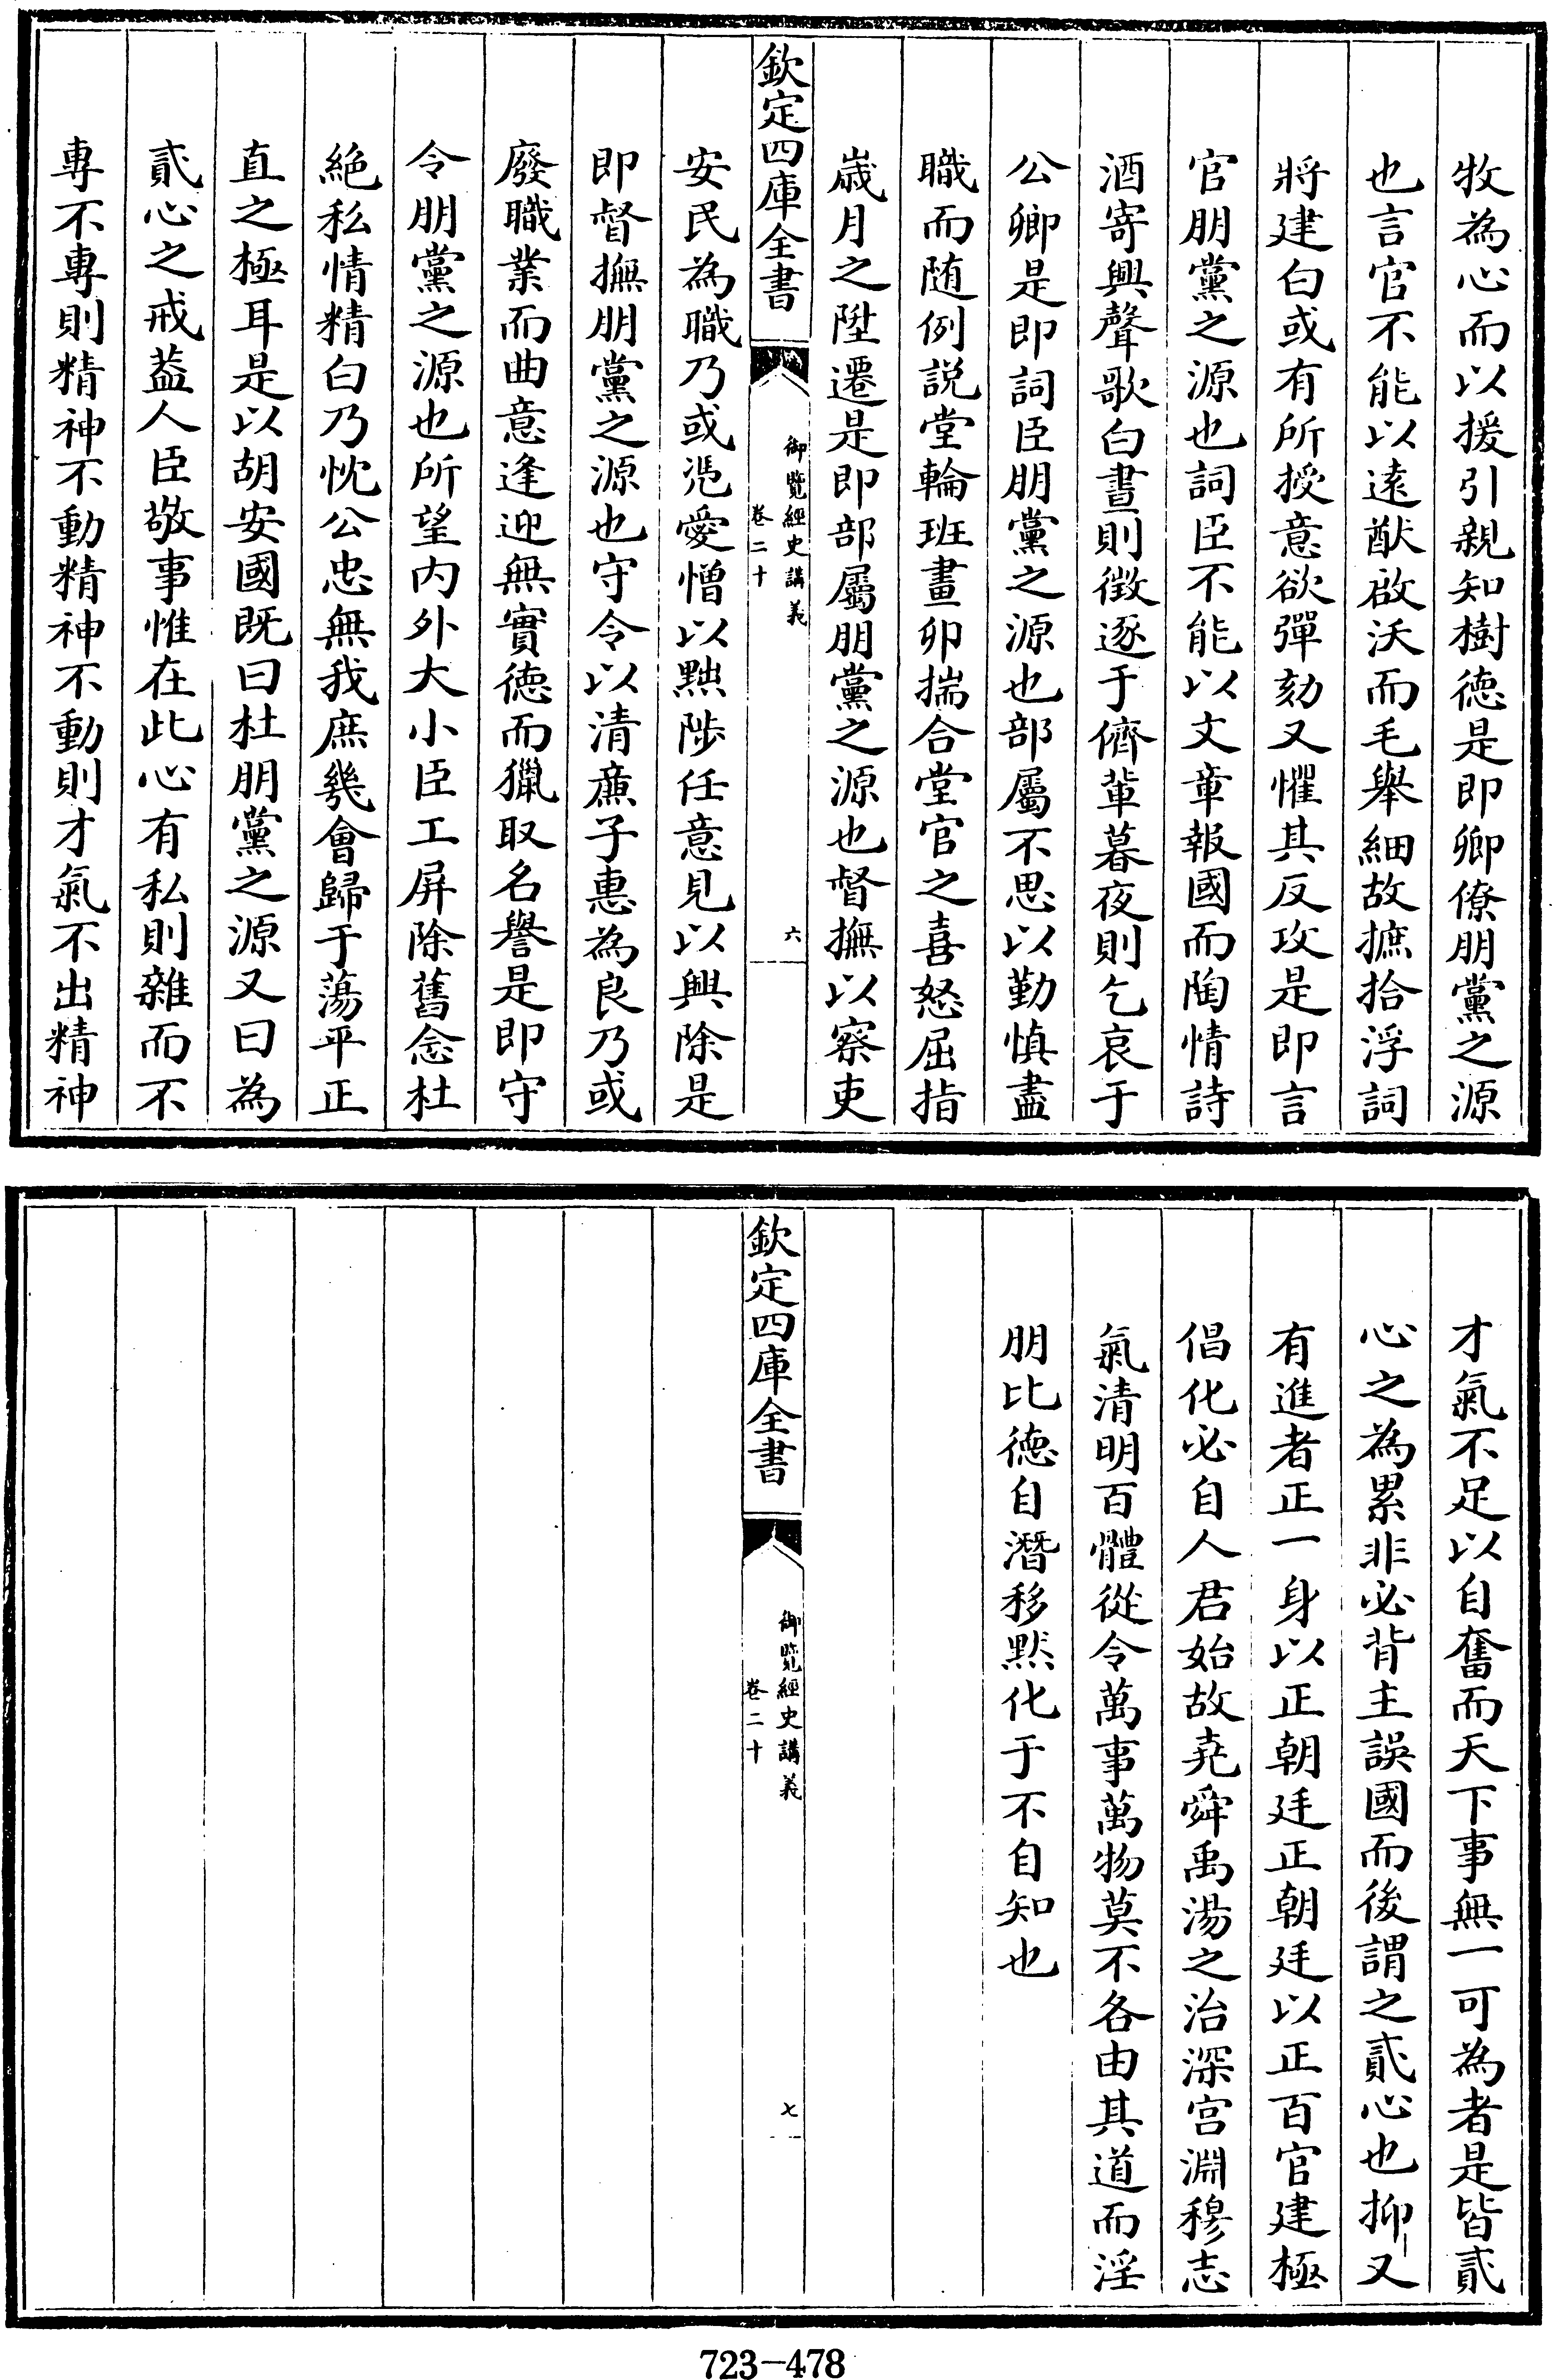 牧為心而以援引親知樹徳是即卿僚朋黨之源
也言官不能以遠猷啟沃而毛舉細故摭拾浮詞
將建白或有所授意欲彈劾又懼其反攻是即言
官朋黨之源也詞臣不能以文章報國而陶情詩
酒寄興聲歌白晝則徴逐于儕軰暮夜則乞哀于
公卿是即詞臣朋黨之源也部屬不思以勤慎盡
職而随例説堂輪班畫卯揣合堂官之喜怒屈指
歳月之陞遷是即部屬朋黨之源也督撫以察吏
欽定四庫全書
御覽經史講義
卷二十
六
安民為職乃或慿愛憎以黜陟任意見以興除是
即督撫朋黨之源也守令以清亷子惠為良乃或
廢職業而曲意逢迎無實徳而獵取名譽是即守
令朋黨之源也所望内外大小臣工屏除舊念杜
絶私情精白乃忱公忠無我庶幾會歸于蕩平正
直之極耳是以胡安國既曰杜朋黨之源又曰為
貳心之戒葢人臣敬事惟在此心有私則雜而不
専不専則精神不動精神不動則才氣不出精神
才氣不足以自奮而天下事無一可為者是皆貳
心之為累非必背主誤國而後謂之貳心也抑又
有進者正一身以正朝廷正朝廷以正百官建極
倡化必自人君始故堯舜禹湯之治深宫淵穆志
氣清明百體從令萬事萬物莫不各由其道而淫
朋比徳自潛移黙化于不自知也
欽定四庫全書
御覽經史講義
卷二十
七
723-478